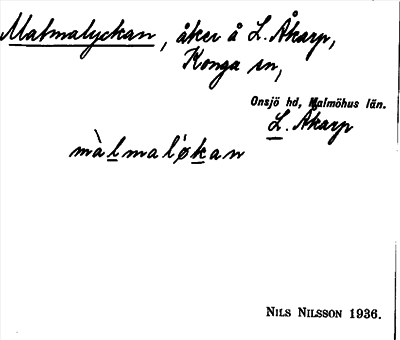 Malmalyckan, åker å L. Åkarp,
Konga sn,
Onsjö hd, Malmöhus län.
L. Åkarp
màlmaløkan
NILS NILSSON 1936.